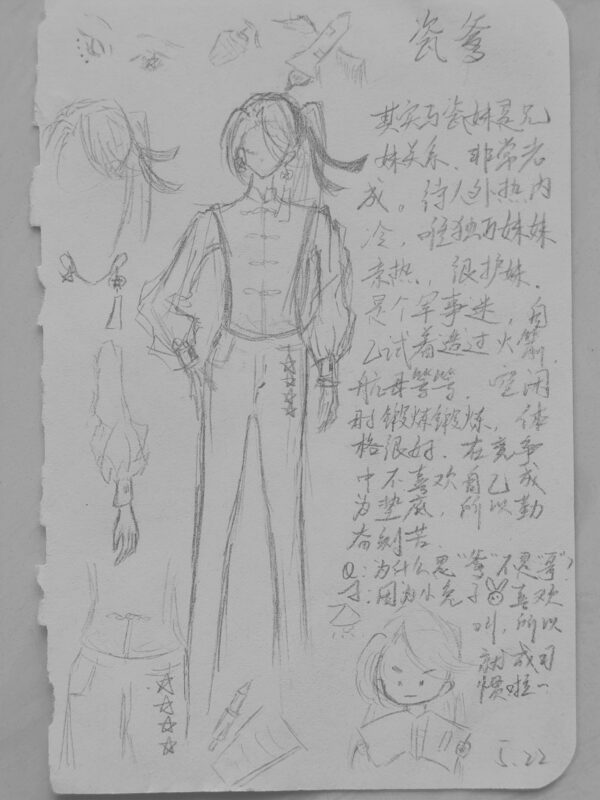 瓷鸢
其实与瓷妹是兄
妹关系，非常老
成。待人外热内
冷，唯独与妹妹
亲热，很护妹。
是个军事迷，自
己试着造过火箭，
航母等等。空闲
时锻炼锻炼，体
格很好。在竞争
中不喜欢自己成
为垫底，所以勤
奋刻苦。
Q:为什么是" "不是"哥"?
因为小兔子喜欢
叫，所以
就成习
惯啦~
5.22